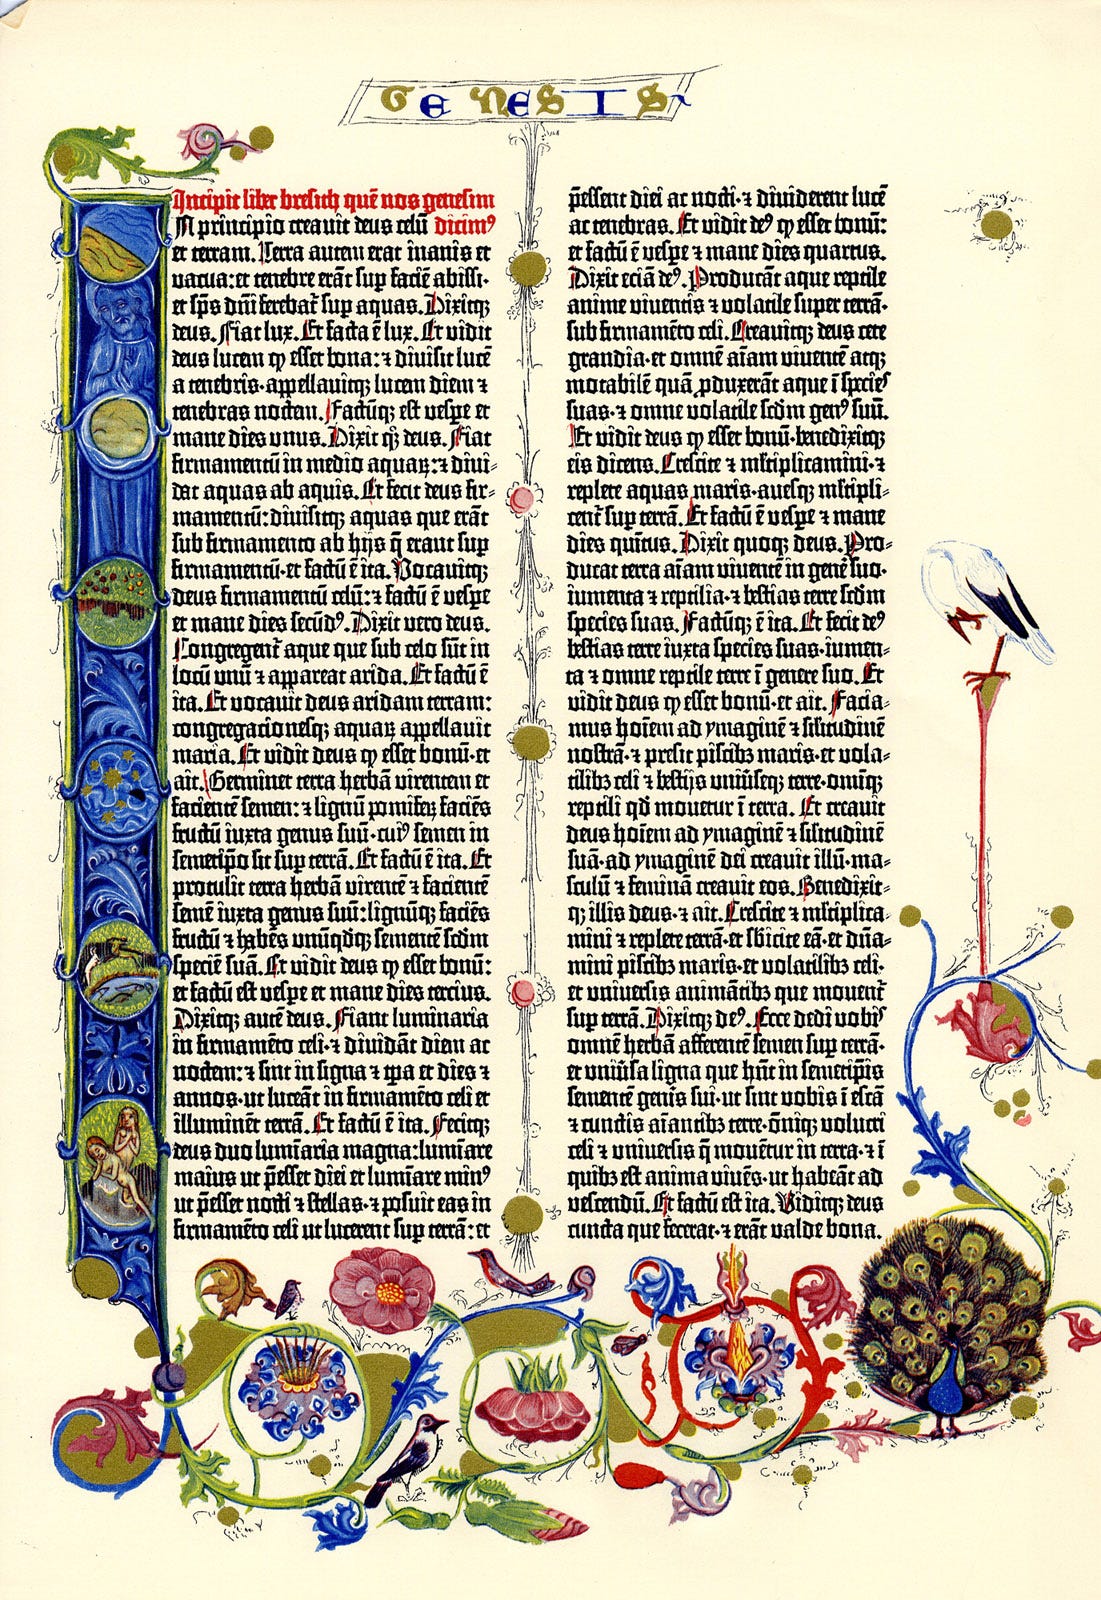 GENESIS
Incipit liber bresith quē nos genesim
In principio creauit deus celū dicimꝰ
et terram. Terra autem erat inanis et
vacua: et tenebre erāt sup faciē abissi·
et sp̄s dn̄i ferebat̄ sup aquas. Dixitqꝫ
deus. Fiat lux. Et facta ē lux. Et vidit
deus lucem ꝙ esset bona: ⁊ diuisit lucē
a tenebris·appellauitqꝫ lucem diem ⁊
tenebras noctem. Factūqꝫ est vespe et
mane dies vnus. Dixit qꝫ deus. Fiat
firmamentū in medio aquaꝝ: ⁊ diui-
dat aquas ab aquis. Et fecit deus fir-
mamentū: diuisitqꝫ aquas que erāt
sub firmamento ab hijs q̄ erant sup
firmamentū·et factū ē ita. Vocauitqꝫ
deus firmamentū celū: ⁊ factū ē vespe
et mane dies secūdꝰ. Dixit vero deus.
Congregent̄ aque que sub celo sūt in
locū vnū ⁊ appareat arida. Et factū ē
ita. Et vocauit deus aridam terram:
congregacionesqꝫ aquaꝝ appellauit
maria. Et vidit deus ꝙ esset bonū·et
ait. Germinet terra herbā virentem et
facientē semen: ⁊ lignū pomifeꝝ faciēs
fructū iuxta genus suū·cuiꝰ semen in
semetip̄o sit sup terrā. Et factū ē ita. Et
protulit terra herbā virentē ⁊ facientē
semē iuxta genus suū: lignūqꝫ faciēs
fructū ⁊ habēs vnūqdqꝫ sementē scd̄m
speciē suā. Et vidit deus ꝙ esset bonū:
et factū est vespe et mane dies tercius.
Dixitqꝫ autē deus. Fiant luminaria
in firmamēto celi·⁊ diuidāt diem ac
noctem: ⁊ sint in signa ⁊ tp̄a et dies ⁊
annos·ut luceāt in firmamēto celi et
illuminēt terrā. Et factū ē ita. Fecitqꝫ
deus duo lumīaria magna: lumīare
maius ut p̄esset diei et lumīare minꝰ
ut p̄esset nocti ⁊ stellas·⁊ posuit eas in
firmamēto celi ut lucerent sup terrā: et
p̄essent diei ac nocti·⁊ diuiderent lucē
ac tenebras. Et vidit deꝰ ꝙ esset bonū:
et factū ē vespe ⁊ mane dies quartus.
Dixit eciā deꝰ. Producāt aque reptile
anime viuentis ⁊ volatile super terrā·
sub firmamēto celi. Creauitqꝫ deus cete
grandia·et omnē aīam viuentē atqꝫ
motabilē quā pduxerāt aque ī species
suas·⁊ omne volatile scd̄m genꝰ suū.
Et vidit deus ꝙ esset bonū·benedixitqꝫ
eis dicens. Crescite ⁊ ml̄tiplicamini·⁊
replete aquas maris·auesqꝫ ml̄tipli-
cent̄ sup terrā. Et factū ē vespe ⁊ mane
dies quītus. Dixit quoqꝫ deus. Pro-
ducat terra aīam viuentē in genē suo·
iumenta ⁊ reptilia·⁊ bestias terre scd̄m
species suas. Factūqꝫ ē ita. Et fecit deꝰ
bestias terre iuxta species suas·iumen-
ta ⁊ omne reptile terre ī genere suo. Et
vidit deus ꝙ esset bonū·et ait. Facia-
mus hoīem ad ymaginē ⁊ sīlitudinē
nostrā·⁊ presit piscibꝫ maris·et vola-
tilibꝫ celi ⁊ bestijs vniūseqꝫ terre·omīqꝫ
reptili qd̄ mouetur ī terra. Et creauit
deus hoīem ad ymaginē ⁊ sīlitudinē
suā·ad ymaginē dei creauit illū·ma-
sculū ⁊ feminā creauit eos. Benedixit-
qꝫ illis deus·⁊ ait. Crescite ⁊ ml̄tiplica-
mini ⁊ replete terrā·et sbicite eā·et dn̄a-
mini piscibꝫ maris·et volatilibꝫ celi·
et vniuersis animātibꝫ que mouent̄
sup terrā. Dixitqꝫ deꝰ. Ecce dedi vobis
omnē herbā afferentē semen sup terrā·
et vniūsa ligna que hn̄t in semetip̄is
sementē genīs sui·ut sint vobis ī escā
⁊ cunctis aīantibꝫ terre·ōniqꝫ volucri
celi ⁊ vniuersis q̄ mouētur in terra·⁊ ī
quibꝫ est anima viuēs·ut habeāt ad
vescendū. Et factū est ita. Viditqꝫ deus
cuncta que fecerat·⁊ erāt valde bona.